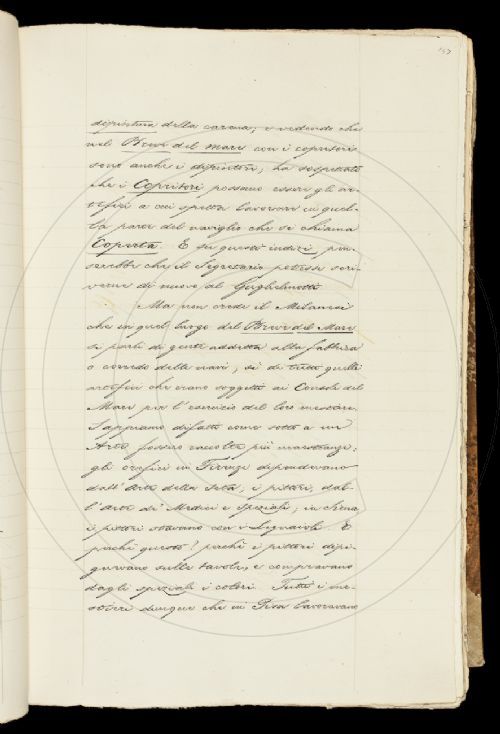 157
dipintura della carena; e vedendo che
nel Breve del Mare con i copritori
sono anche i dipintori, ha sospettato
che i Copritori possano essere gli ar-
tefici a cui spetta lavorare in quel-
la parte del naviglio che si chiama
Coperta. E su questi indizi, pen-
serebbe che il Segretario potesse scri-
verne di nuovo al Guglielmotti.
Ma non crede il Milanesi
che in quel luogo del Breve del Mare
si parli di gente addetta alla fabbrica
o corredo delle navi, sì de tutti quelli
artefici che erano soggetti ai Consoli del
Mare per l'esercizio del loro mestiere.
Sappiamo difatti come sotto a un'
Arte fossero raccolte più maestranze:
gli orefici in Firenze dipendevano
dall'Arte della Seta; i pittori, dal-
l'Arte de' Medici e Speziali; in Siena
i pittori stavano con i Legnaioli. E
perché questo? perché i pittori dipi-
gnevano sulle tavole, e compravano
dagli speziali i colori. Tutti i me-
stieri dunque che in Pisa lavoravano